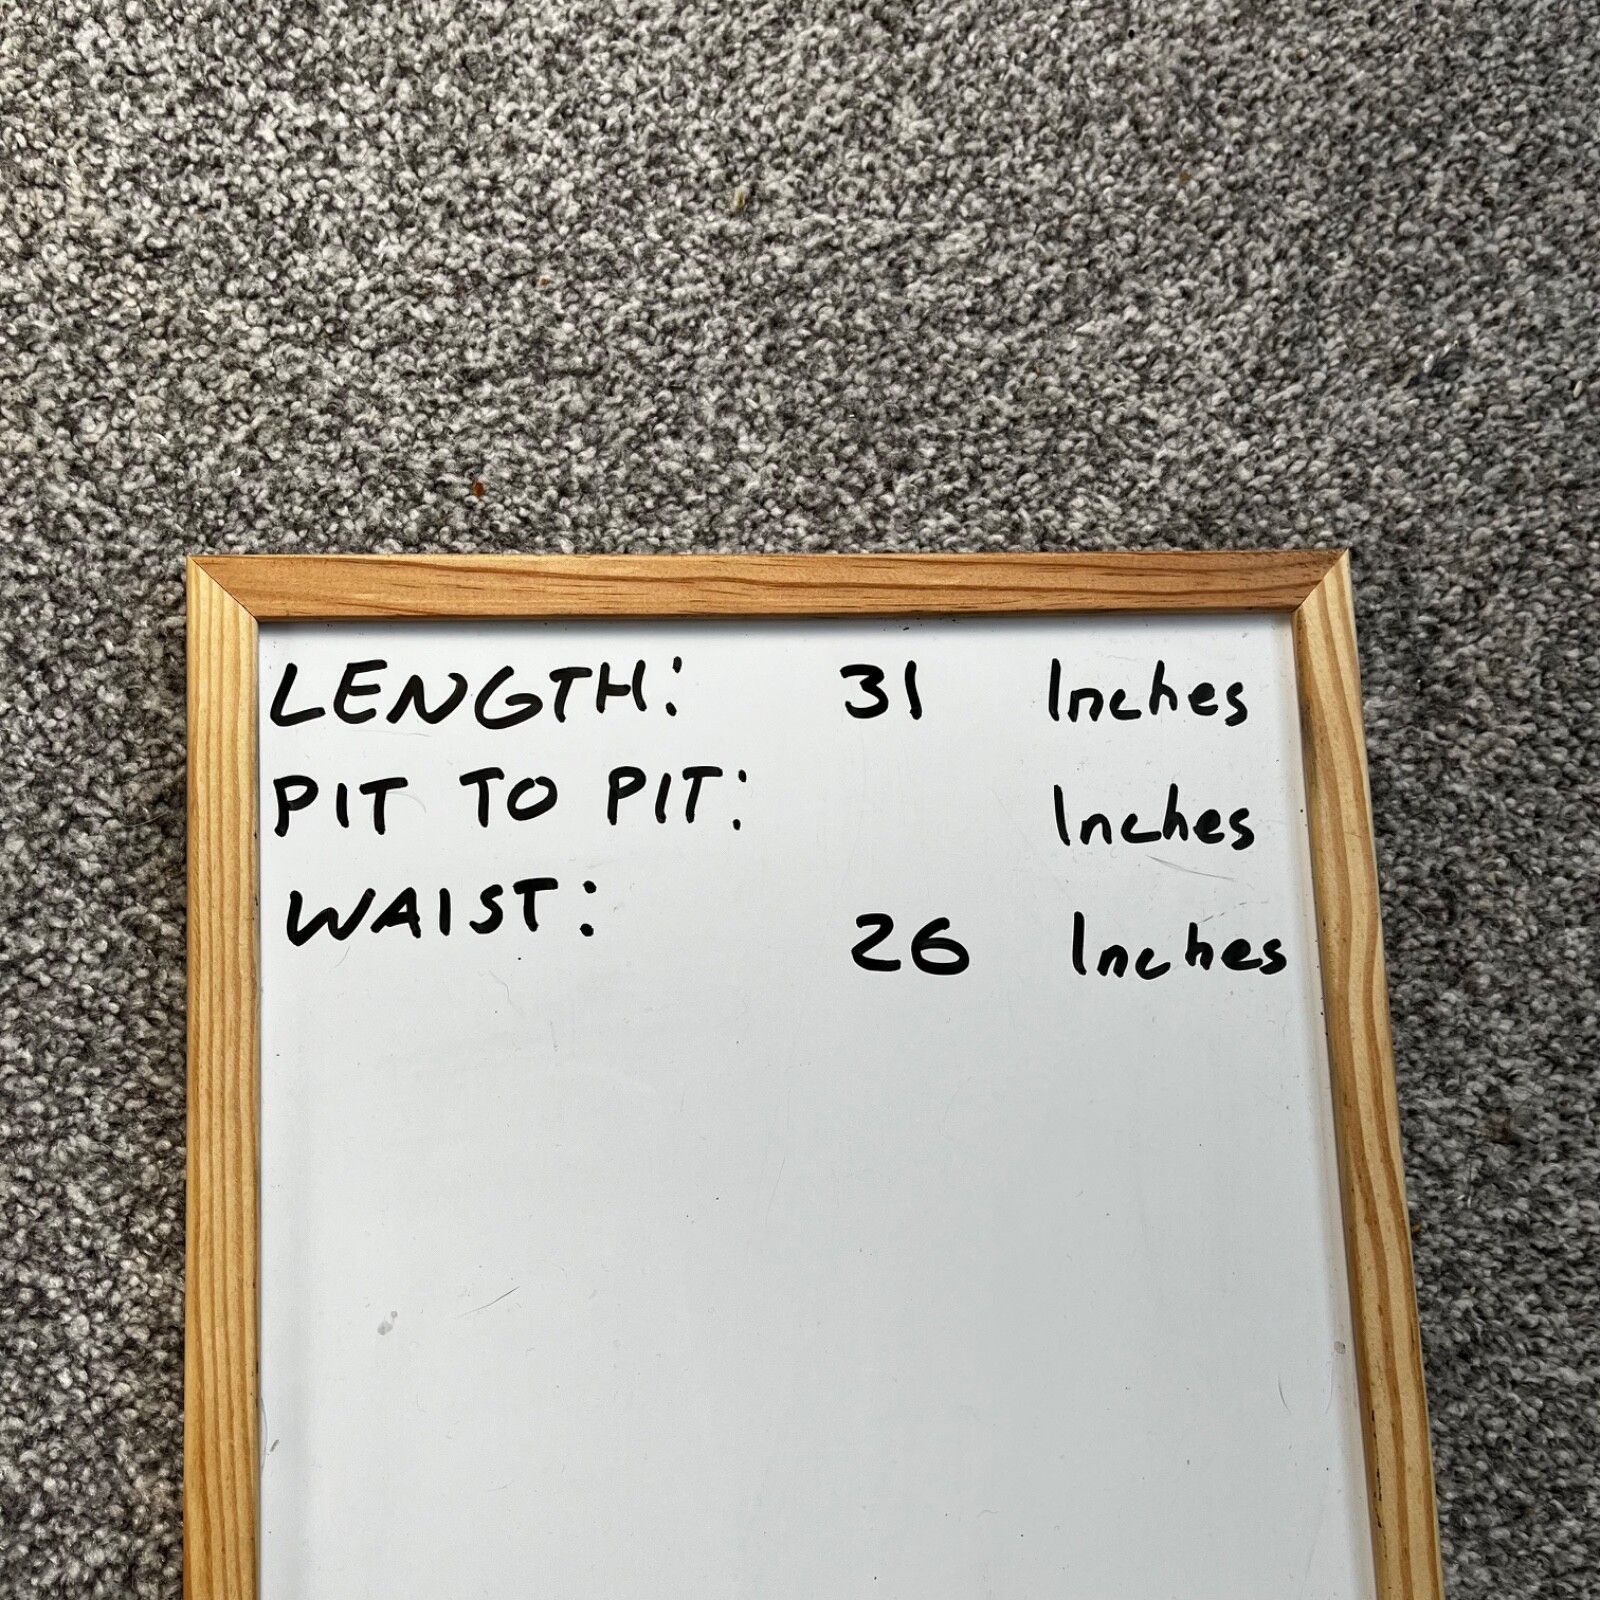 LENGTH: 31 Inches
PIT TO PIT: Inches
WAIST: 26 Inches